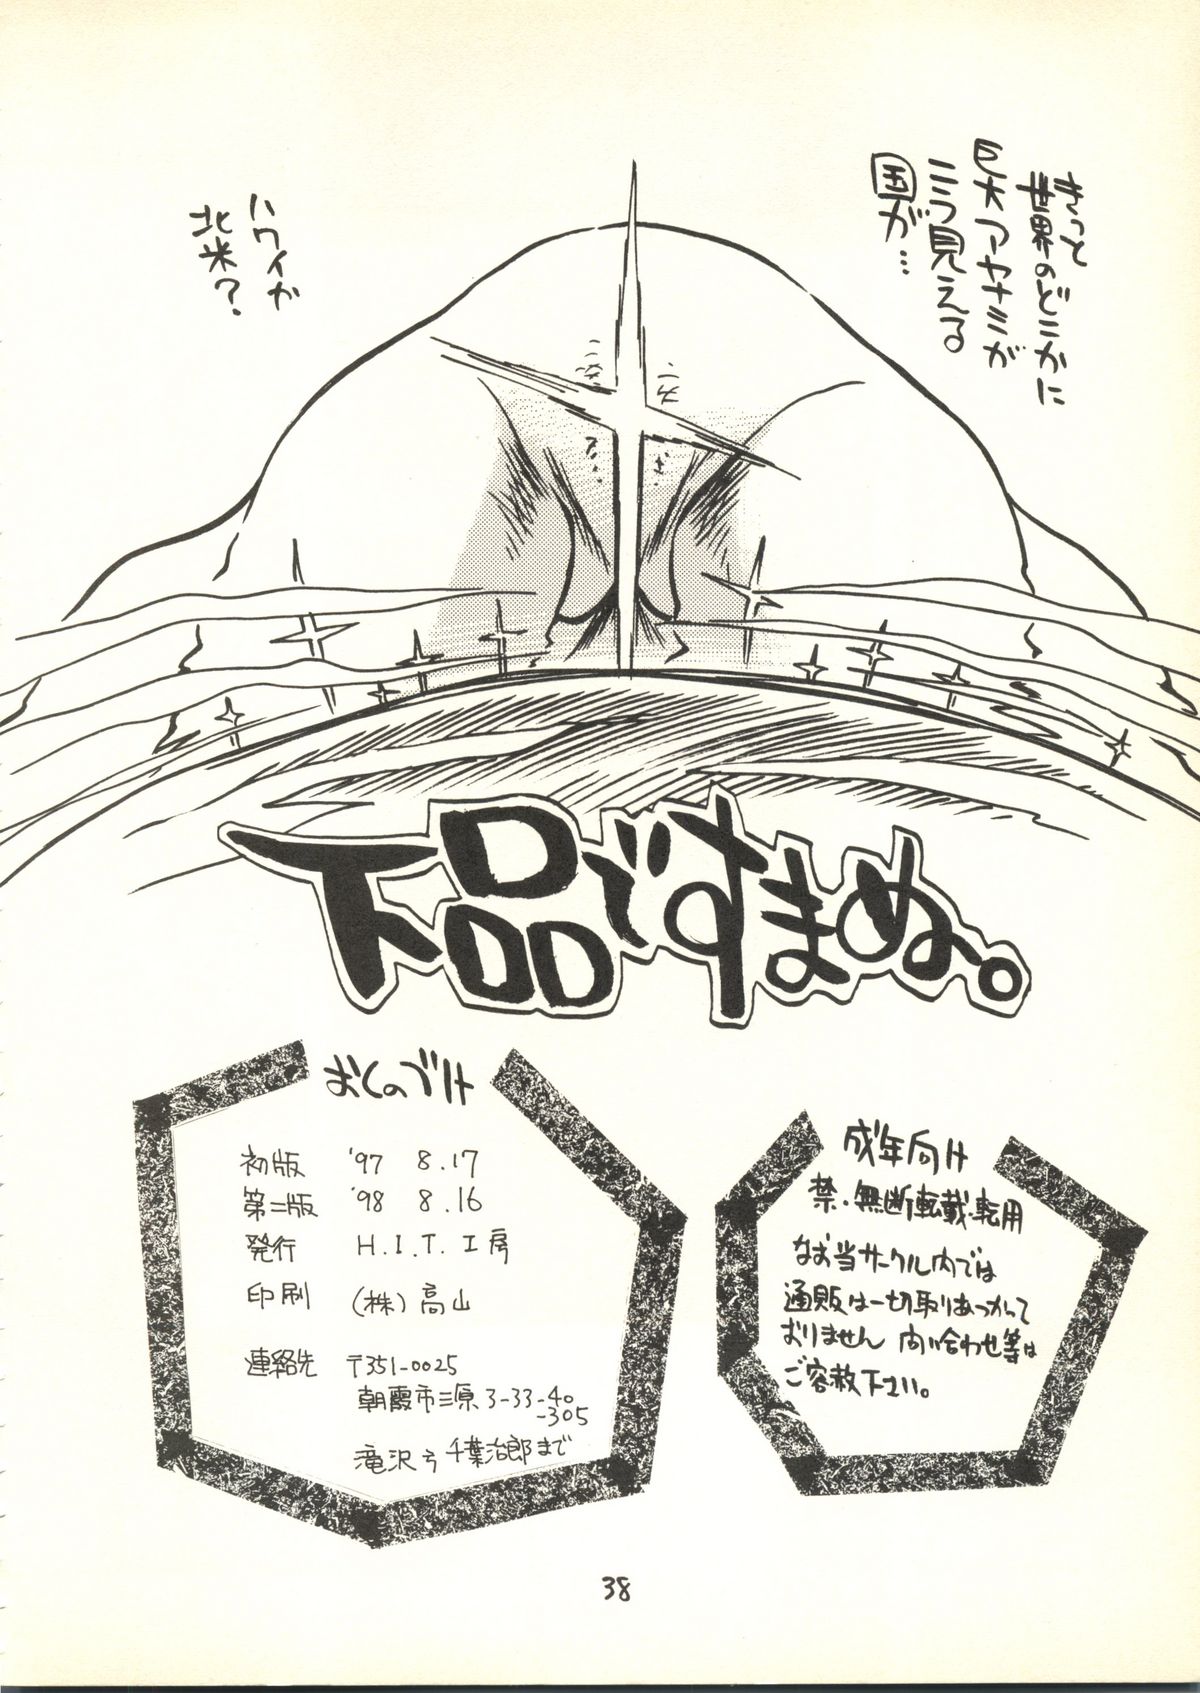 きっと
世界のどこかに
巨大アヤナミが
こう見える
国が…
ハワイか
北米?
下品ですまぬ。
おくのづけ
初版 '97 8.17
第二版 '98 8.16
発行 H.I.T.工房
印刷 (株)高山
連絡先 〒351-0025
朝霞市三原3-33-40
-305
滝沢方 千葉治郎まで
成年向け
禁・無断転載・転用
なお当サークル内では
通販は一切取りあつかって
おりません 問い合わせ等は
ご容赦下さい。
38